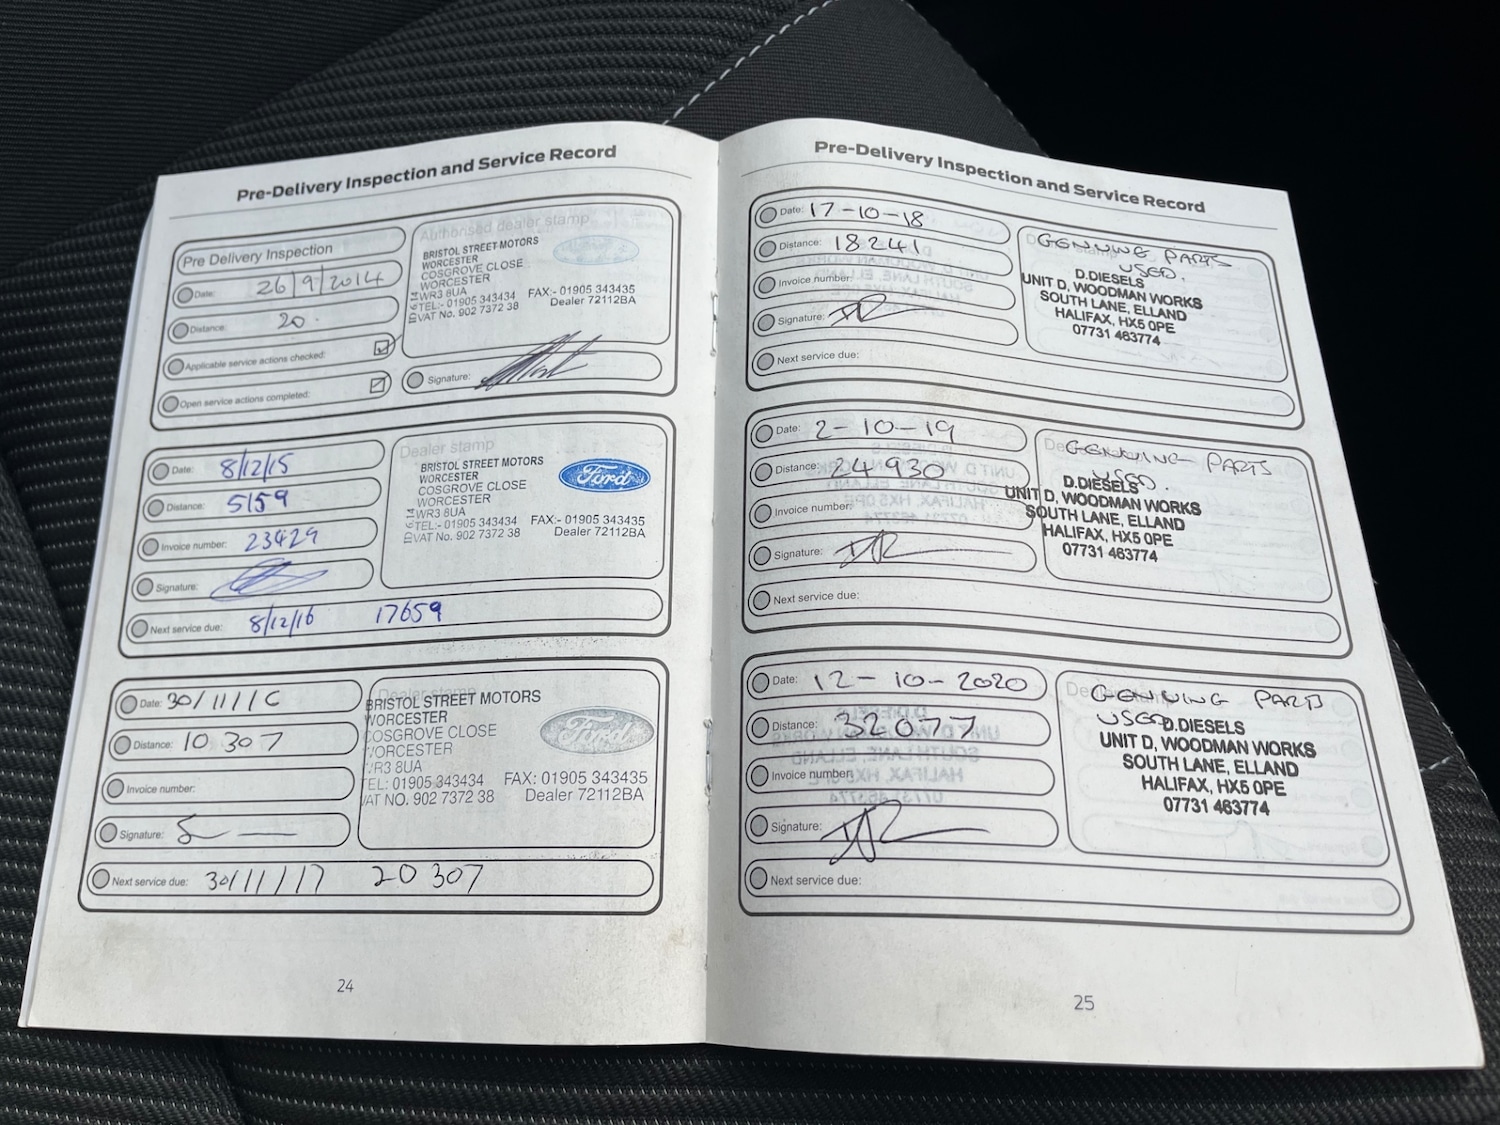 Pre-Delivery Inspection and Service Record
Pre Delivery Inspection
Date: 26/9/2014
Distance: 20.
Applicable service actions checked:
Open service actions completed:
Authorised dealer stamp
BRISTOL STREET MOTORS
WORCESTER
COSGROVE CLOSE
WORCESTER
WR3 8UA
TEL:- 01905 343434 FAX:- 01905 343435
VAT No. 902 7372 38 Dealer 72112BA
Signature:
Date: 8/12/15
Distance: 5159
Invoice number: 23429
Signature:
Next service due: 8/12/16 17659
Dealer stamp
BRISTOL STREET MOTORS
WORCESTER
COSGROVE CLOSE
WORCESTER
WR3 8UA
TEL:- 01905 343434 FAX:- 01905 343435
VAT No. 902 7372 38 Dealer 72112BA
Ford
Date: 30/11/16
Distance: 10 307
Invoice number:
Signature:
Next service due: 30/11/17 20 307
Dealer stamp
BRISTOL STREET MOTORS
WORCESTER
COSGROVE CLOSE
WORCESTER
WR3 8UA
TEL: 01905 343434 FAX: 01905 343435
VAT NO. 902 7372 38 Dealer 72112BA
Ford
24
Pre-Delivery Inspection and Service Record
Date: 17-10-18
Distance: 18241
Invoice number:
Signature:
Next service due:
GENUINE PARTS
USED.
D.DIESELS
UNIT D, WOODMAN WORKS
SOUTH LANE, ELLAND
HALIFAX, HX5 0PE
07731 463774
Date: 2-10-19
Distance: 24930
Invoice number:
Signature:
Next service due:
GENUINE PARTS
USED.
D.DIESELS
UNIT D, WOODMAN WORKS
SOUTH LANE, ELLAND
HALIFAX, HX5 0PE
07731 463774
Date: 12-10-2020
Distance: 32077
Invoice number:
Signature:
Next service due:
GENUINE PARTS
USED
D.DIESELS
UNIT D, WOODMAN WORKS
SOUTH LANE, ELLAND
HALIFAX, HX5 0PE
07731 463774
25